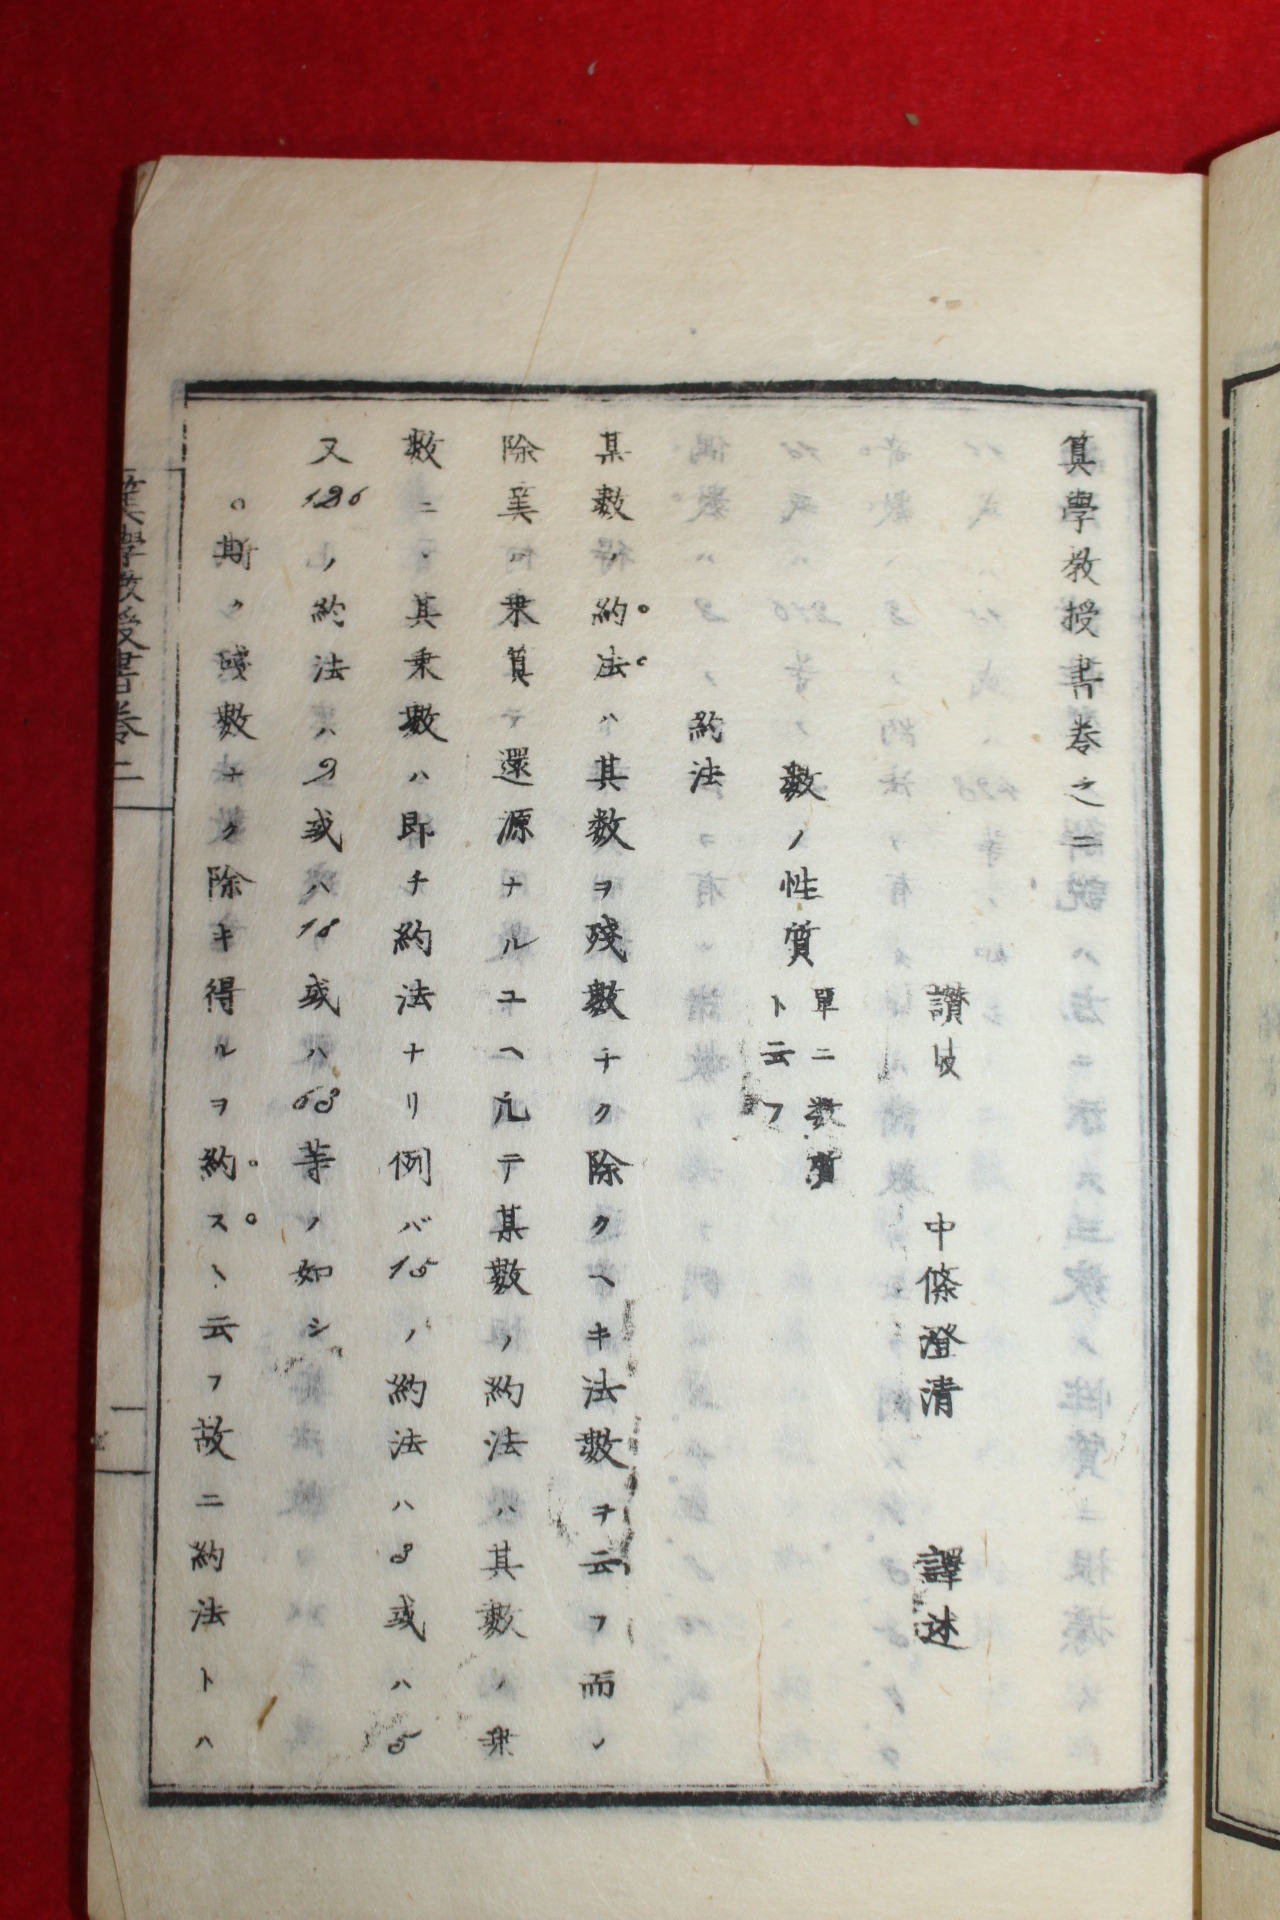 算學教授書卷之二
讃岐 中條澄清 譯述
數ノ性質 單ニ數質
ト云フ
約法
某數ノ約法ハ其数ヲ殘數ナク除クヘキ法數ヲ云フ而ノ
除筭ハ乘算テ還源ナルユヘ凡テ某數ノ約法ハ其數ノ乘
數ニ〆其乘數ハ即チ約法ナリ例バ15ノ約法ハ3或ハ5
又126ノ約法ハ2或ハ18或ハ63等ノ如シ
期ク殘數ナク除キ得ルヲ約スヽ云フ故ニ約法トハ
筭學教授書卷二
一